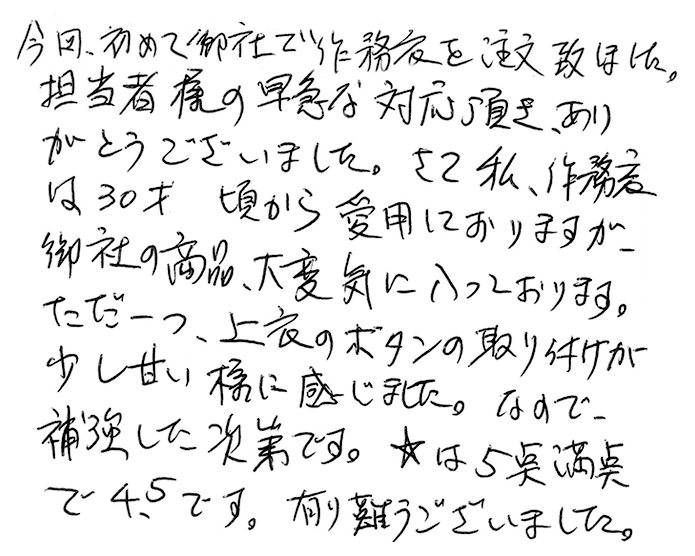 今回、初めて御社で作務衣を注文致しました。
担当者様の早急な対応頂き、あり
がとうございました。さて私、作務衣
は30才 頃から愛用しておりますが、
御社の商品、大変気に入っております。
ただ一つ、上衣のボタンの取り付けが
少し甘い様に感じました。なので、
補強した次第です。★は5点満点
で4.5です。有り難うございました。